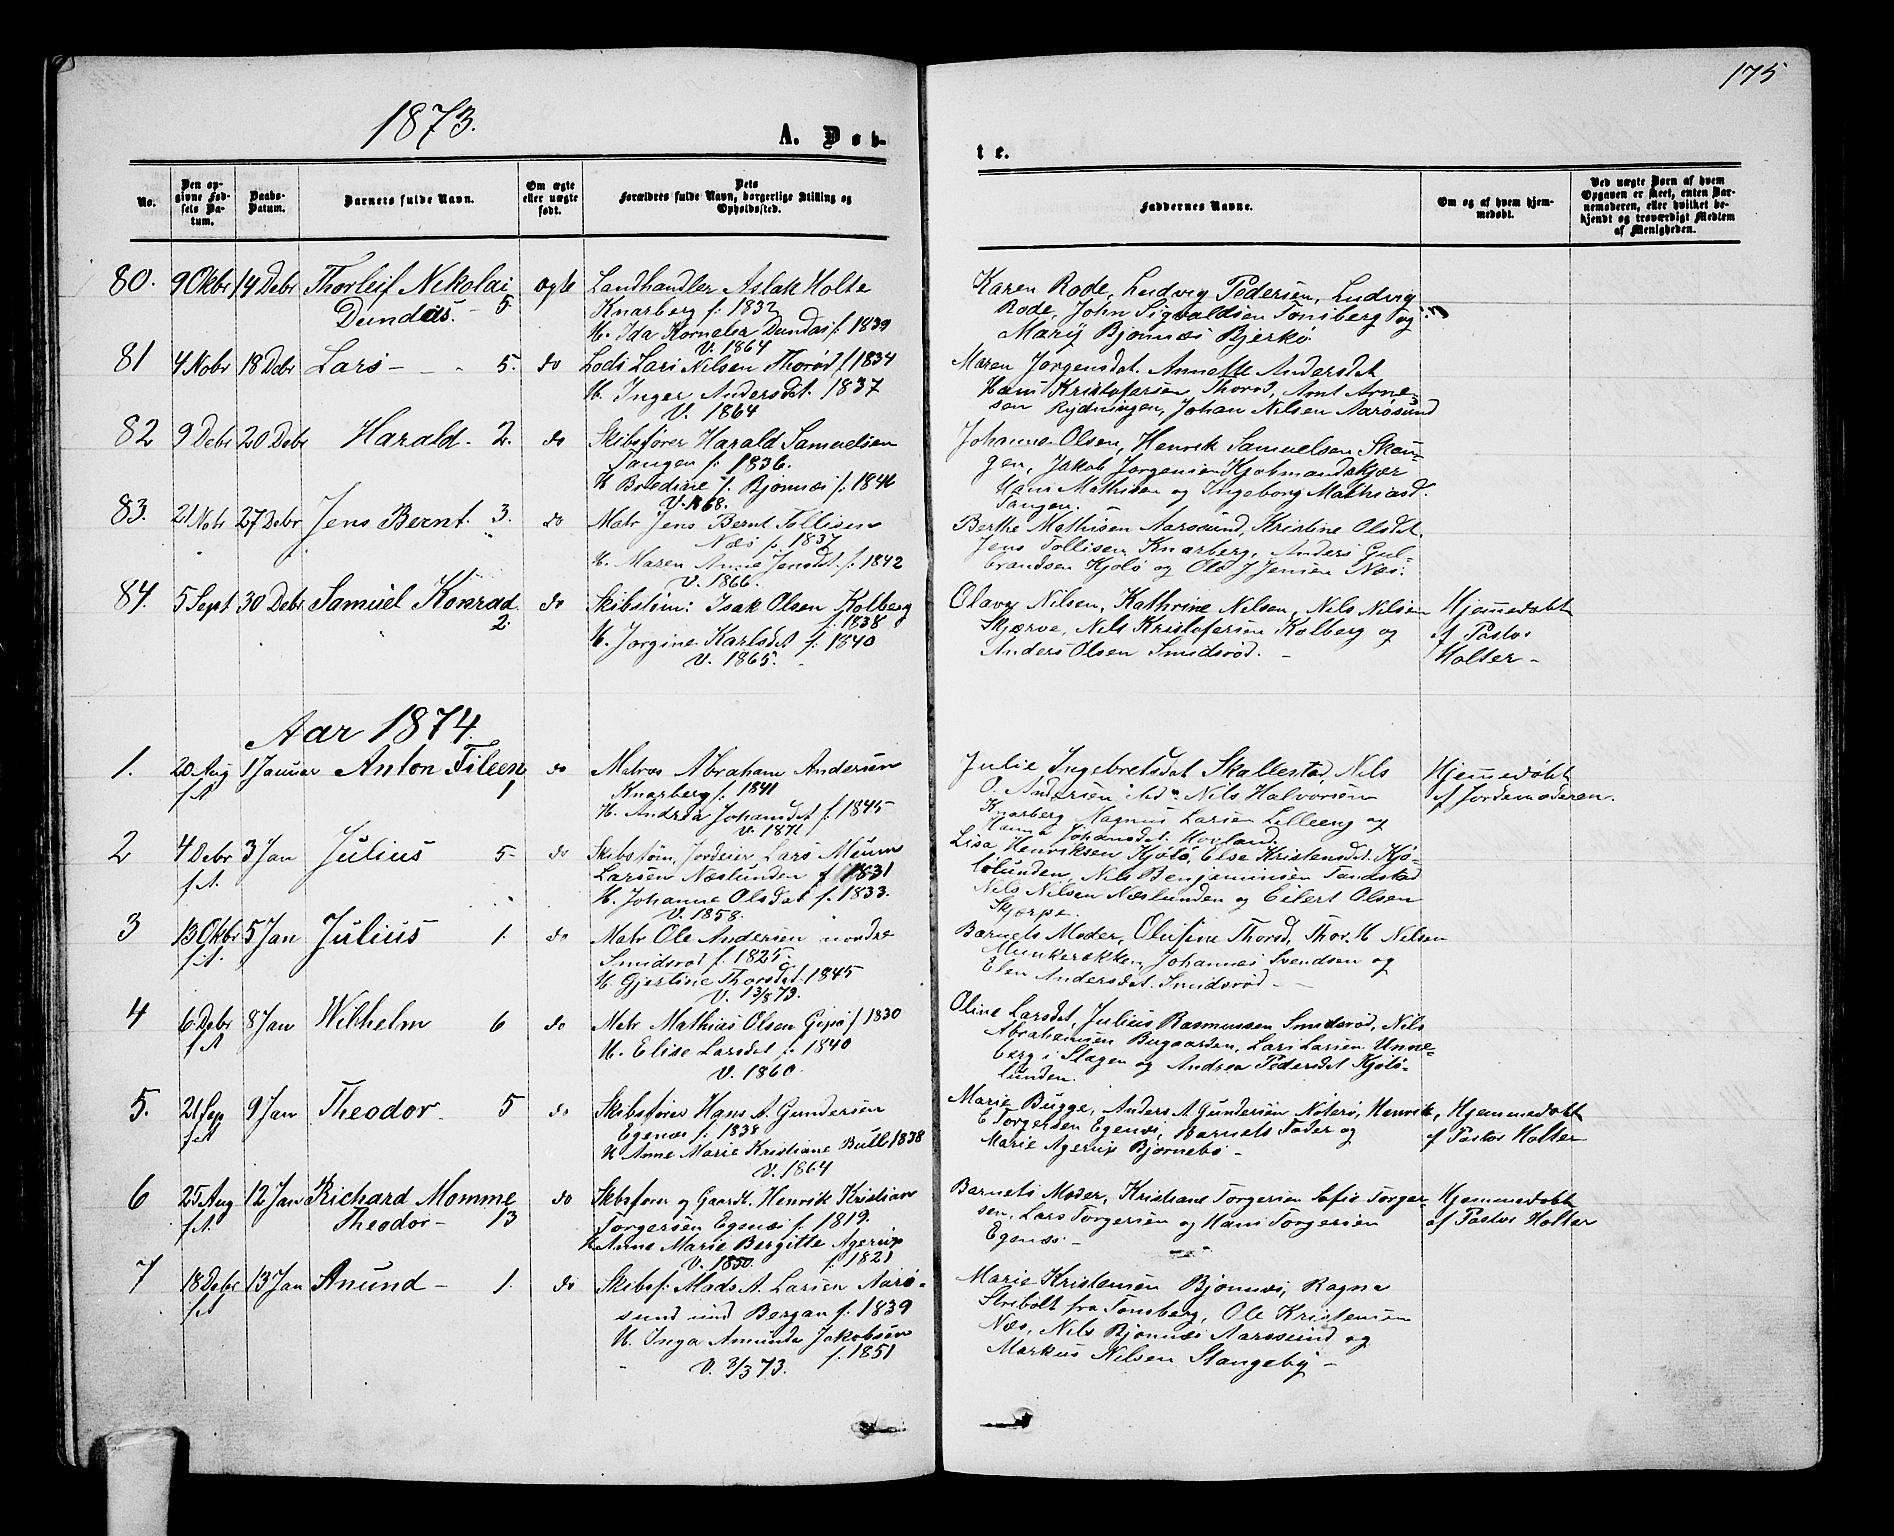 175
1873.
A. Døb-
t e.
No.
Den op-
givne Fød-
sels Da-
tum.
Daabs-
Datum.
Barnets fulde Navn.
Om ægte
eller uægte
født.
Dets
Forældres fulde Navn, borgerlige Stilling og
Opholdssted.
Faddernes Navne.
Om og af hvem hjem-
medøbt.
Ved uægte Børn af hvem
Opgaven er skeet, enten Bar-
nemoderen, eller hvilket be-
kjendt og troværdigt Medlem
af Menigheden.
80. 9 Okbr 14 Debr Thorleif Nikolai
Dundas. - 5
ægte
Landhandler Aslak Holte
Knarberg f. 1832
H. Ida Kornelia Dundas f. 1839
V. 1864
Karen Rode, Ludvig Pedersen, Ludvig
Rode, John Sigvaldsen Tønsberg og
Mary Bjønnæs Bjerkø
81 4 Nobr 18 Debr Lars - - - 5. do
Lods Lars Nilsen Thorød f 1834
H. Inger Andersdat. 1837
V. 1864
Maren Jørgensdat. Annette Andersdat
Hans Kristofersen Thorød, Arnt Arne-
sen Rydningen, Johan Nilsen Aarøsund
82 9 Debr 20 Debr Harald - 2. do
Skibsfører Harald Samuelsen
Tangen f. 1836.
H Bredine f. Bjønnæs f. 1846
V. 1868.
Johanne Olsen, Henrik Samuelsen Skau-
gen, Jakob Jørgensen Kjøbmandskjær
Hans Mathisen og Ingeborg Mathiasd.
Tangen.
83. 21 Nobr 27 Debr Jens Bernt. 3. do
Matr Jens Bernt Tollisen
Næs f. 1837
H. Maren Anne Jensdt. f. 1842
V. 1866.
Berthe Mathisen Aarøsund, Kristine Olsdat.
Jens Tollisen Knarberg, Anders Gul-
brandsen Kjølø og Ole J Jensen Næs.
84. 5 Sept 30 Debr Samuel Konrad
2.
do
Skibstøm: Isak Olsen Kolberg
f. 1838
H. Jørgine Karlsdat f. 1840
V. 1865. -
Olavy Nilsen, Kathrine Nilsen, Nils Nilsen
Skjærve, Nils Kristofersen Kolberg og
Anders Olsen Smidsrød. -
Hjemmedøbt
af Pastor
Holter -
Aar 1874.
1. 20 Aug 1 Januar Anton Tileen
f A
1
do
Matros Abraham Andersen
Knarberg f. 1841
H. Andrea Johansdat f. 1845
V. 1871
Julie Ingebretsdat Skallestad, Nils
O. Andersen Nils Halvorsen
Knarberg Magnus Larsen Lilleeng og
Hanna Johansdat. Hovland.
Hjemmedøbt
af Jordemoderen.
2 4 Debr 3 Jan Julius 5- do
f A.
Skibstøm, Jordeier Lars Meum
Larsen Næslunden f 1831
H. Johanne Olsdat f. 1833.
V. 1858.
Lisa Henriksen Kjølø, Else Kristensdat. Kjø-
lølunden, Nils Benjaminsen Tandstad
Nils Nilsen Næslunden og Eilert Olsen
Skjerpe.
3 13 Okbr 5 Jan Julius 1. do
f. A.
Matr Ole Andersen nordre
Smidsrød f. 1825.
H. Gjertine Thorsdat. 1845
V. 13/8 73.
Barnets Moder, Olufine Thorsd, Thor. H Nilsen
Munkerækken, Johannes Svendsen og
Elen Andersdat. Smidsrød -
4 6 Debr 8 Jan Wilhelm 6 do
f A
Matr Mathias Olsen Gipø f 1830
H. Elise Larsdat f. 1840
V. 1860.
Oline Larsdat, Julius Rasmussen Smidsrød, Nils
Abrahamsen Bugaarden, Lars Larsen Unne-
berg i Slagen og Andrea Pedersdat Kjølø-
lunden.
5. 21 Sep 9 Jan Theodor. 5 do
f A
Skibsfører Hans A. Gundersen
Egenæs f. 1838
H Anne Marie Kristiane Bull, 1838
V. 1864
Marie Bugge, Anders A Gundersen Nøterø, Henrik,
E Torgersen Egenæs, Barnets Fader og
Marie Agerup Bjørnebo -
Hjemmedøbt
af Pastor Holter
6 25 Aug 12 Jan Richard Momme
f A. Theodor - 13
do
Skibsfører og Gaardb. Henrik Kristian
Torgersen Egenæs f. 1819.
H. Anne Marie Bergitte Agerup
V. 1850. f. 1821
Barnets Moder, Kristiane Torgersen Sofie Torger-
sen, Lars Torgersen og Hans Torgersen
Egenæs -
Hjemmedøbt
af Pastor Holter
7 18 Debr 13 Jan Anund - 1. do
f A
Skibsf. Mads A. Larsen Aarø-
sund ind Bergan f. 1839
H. Inga Amunda Jakobsen
V. 8/3 73. f. 1851
Marie Kristensen Bjønnæs, Ragna
Stribolt fra Tønsberg, Ole Kristensen
Næs, Nils Bjønnæs Aarøsund og
Markus Nilsen Stangeby -